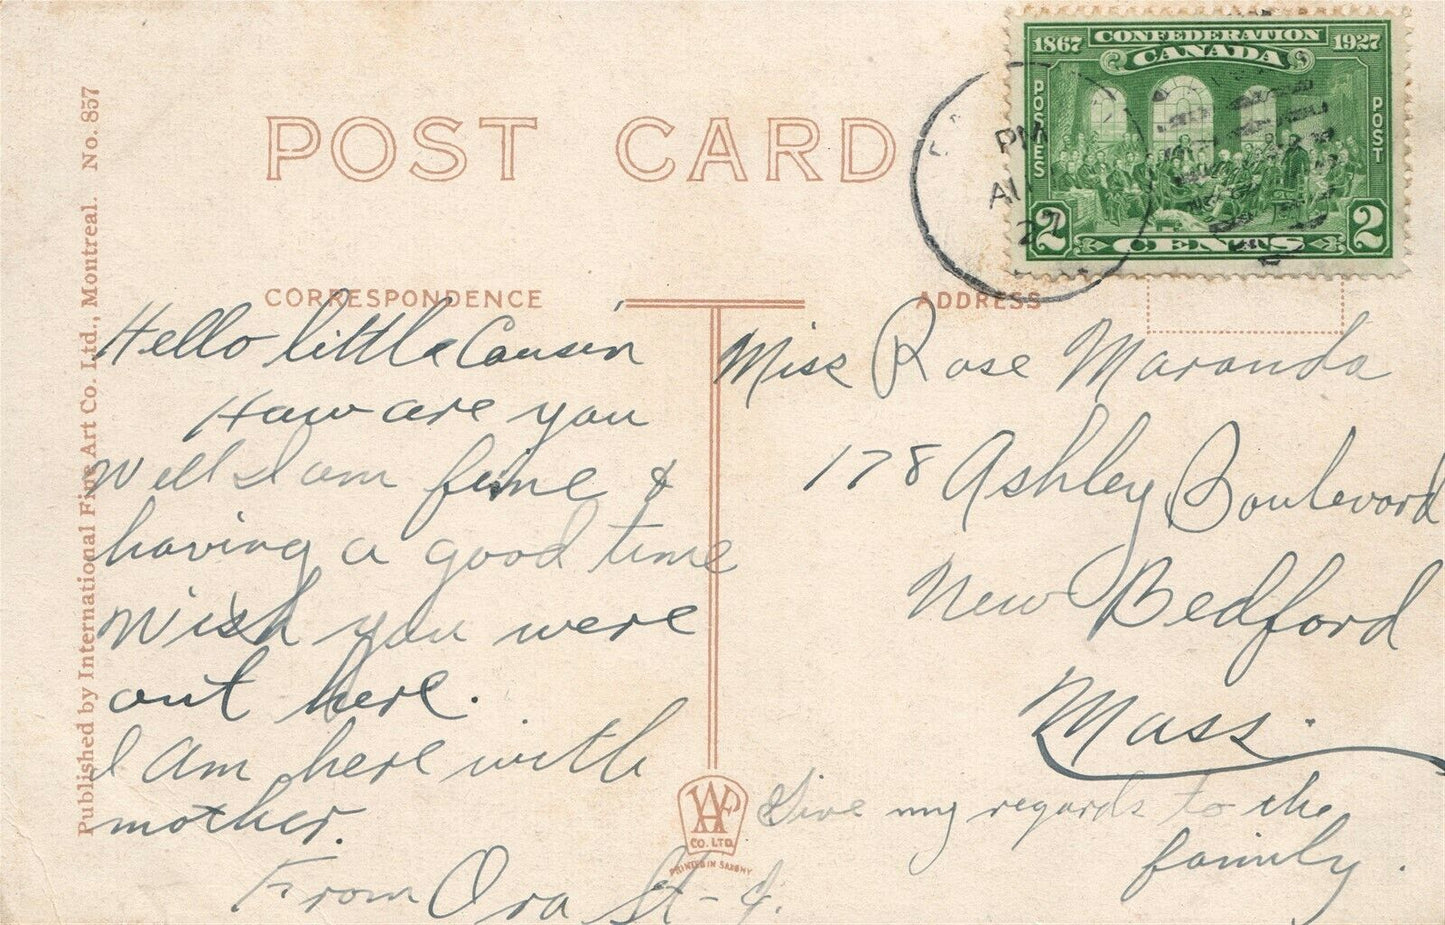 1867 CONFEDERATION 1927
CANADA
POSTES
POST
2 CENTS 2
PM
27
POST CARD
CORRESPONDENCE
ADDRESS
Published by International Fine Art Co. Ltd., Montreal. No. 857
Hello little Cousin
How are you
Well I am fine &
having a good time
Wish you were
out here.
I am here with
mother.
From Ora St-J.
Miss Rose Maranda
178 Ashley Boulevard
New Bedford
Mass.
Give my regards to the
family.
CO. LTD.
PRINTED IN SAXONY